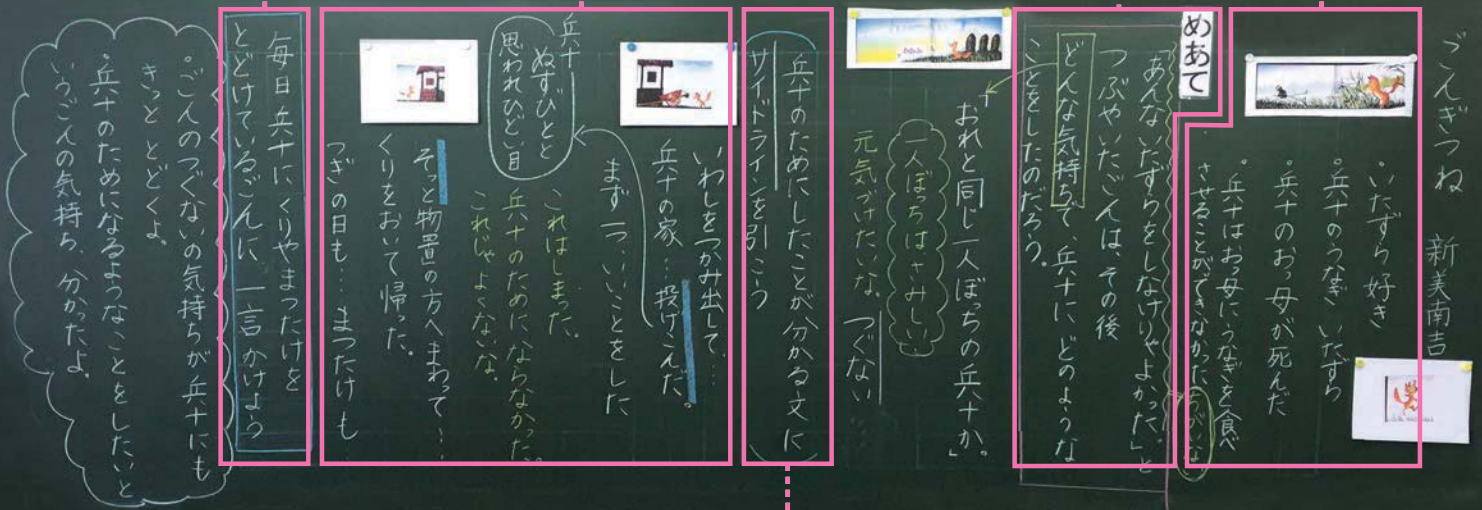 ごんぎつね
新美南吉
・いたずら好き
・兵十のうなぎ いたずら
兵十のおっ母が死んだ
・兵十はおっ母にうなぎを食べ
させることができなかった。ちがいない
めあて
「あんないたずらをしなけりゃよかった。」と
つぶやいたごんは、その後
どんな気持ちで、兵十に、どのような
ことをしたのだろう。
「おれと同じ一人ぼっちの兵十か。」
一人ぼっちはさみしい。
元気づけたいな。 つぐない
兵十のためにしたことが分かる文に
サイドラインを引こう
いわしをつかみ出して…
兵十の家…投げこんだ。
まず一つ、いいことをした
兵十
ぬすびとと
思われひどい目
これはしまった。
兵十のためにならなかった。
これじゃよくないな。
そっと物置の方へまわって…
くりをおいて帰った。
つぎの日も…まつたけも
毎日兵十にくりやまつたけを
とどけているごんに一言かけよう
・ごんのつぐないの気持ちが兵十にも
きっととどくよ。
・兵十のためになるようなことをしたいと
いうごんの気持ち、分かったよ。